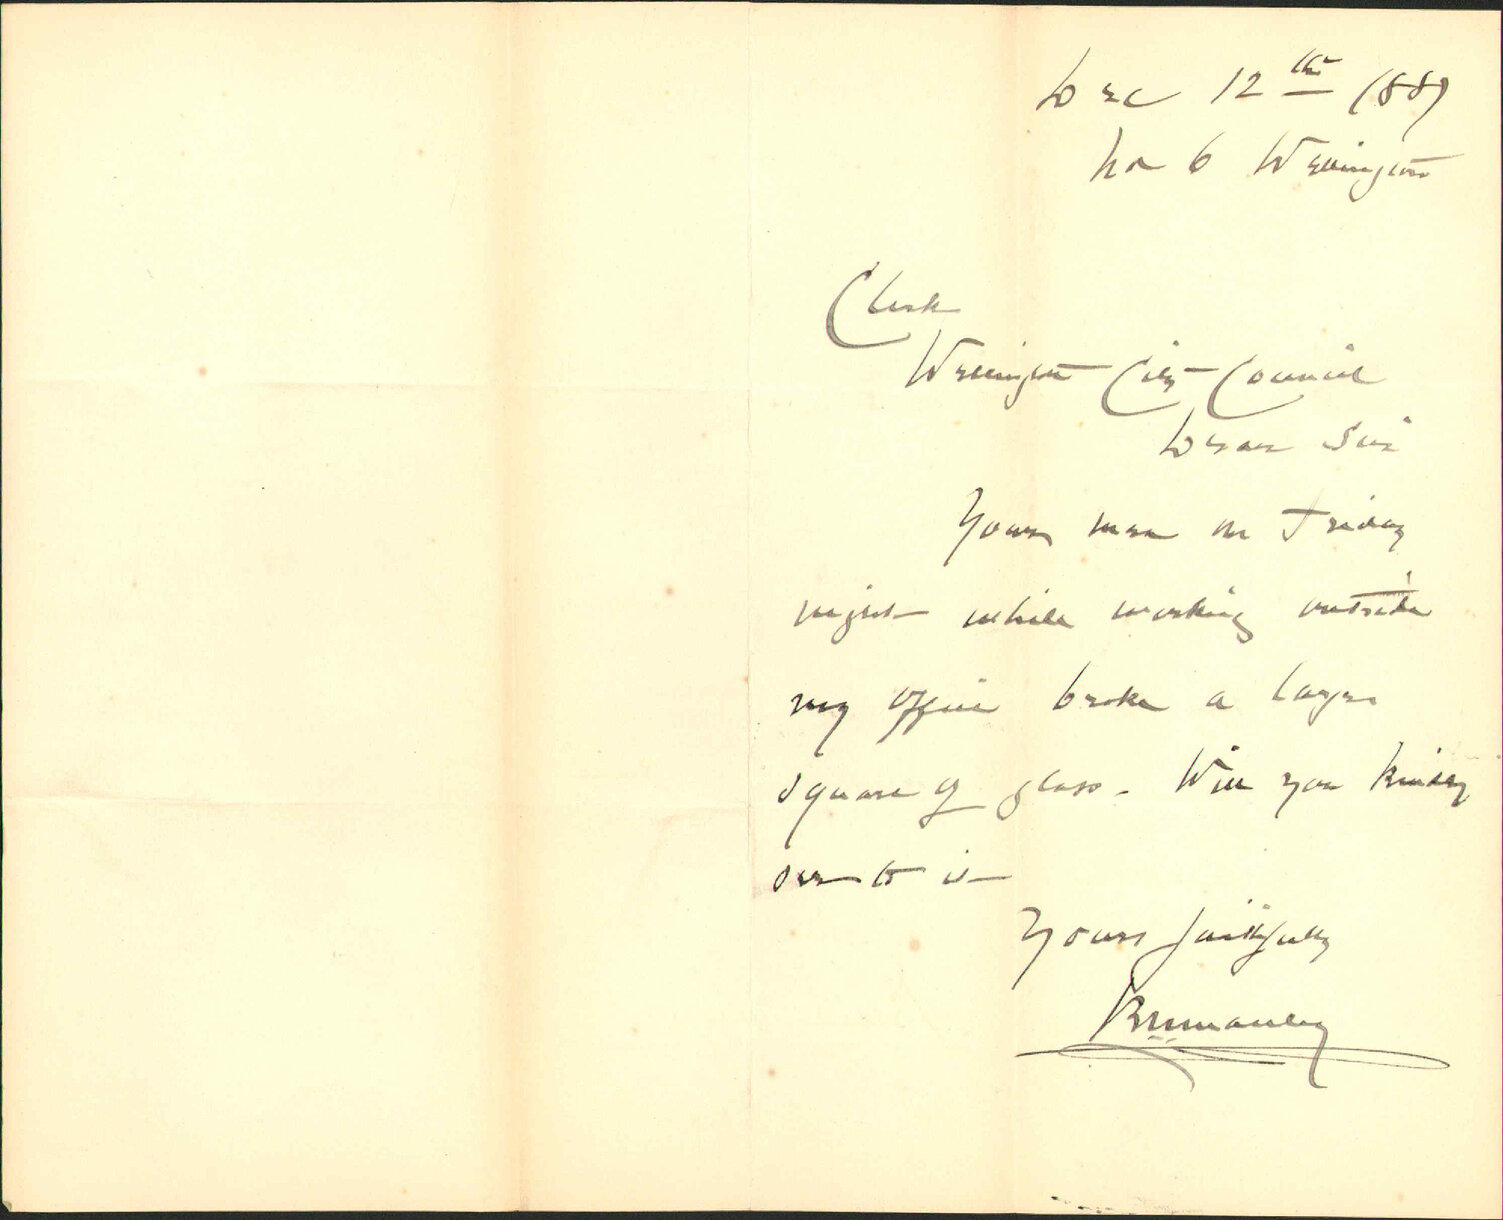 Dec 12th 1889
No 6 Wellington
Clerk
Wellington City Council
Dear Sir
Your men on Friday
night while working outside
my office broke a large
square of glass. Will you kindly
see to it
Yours faithfully